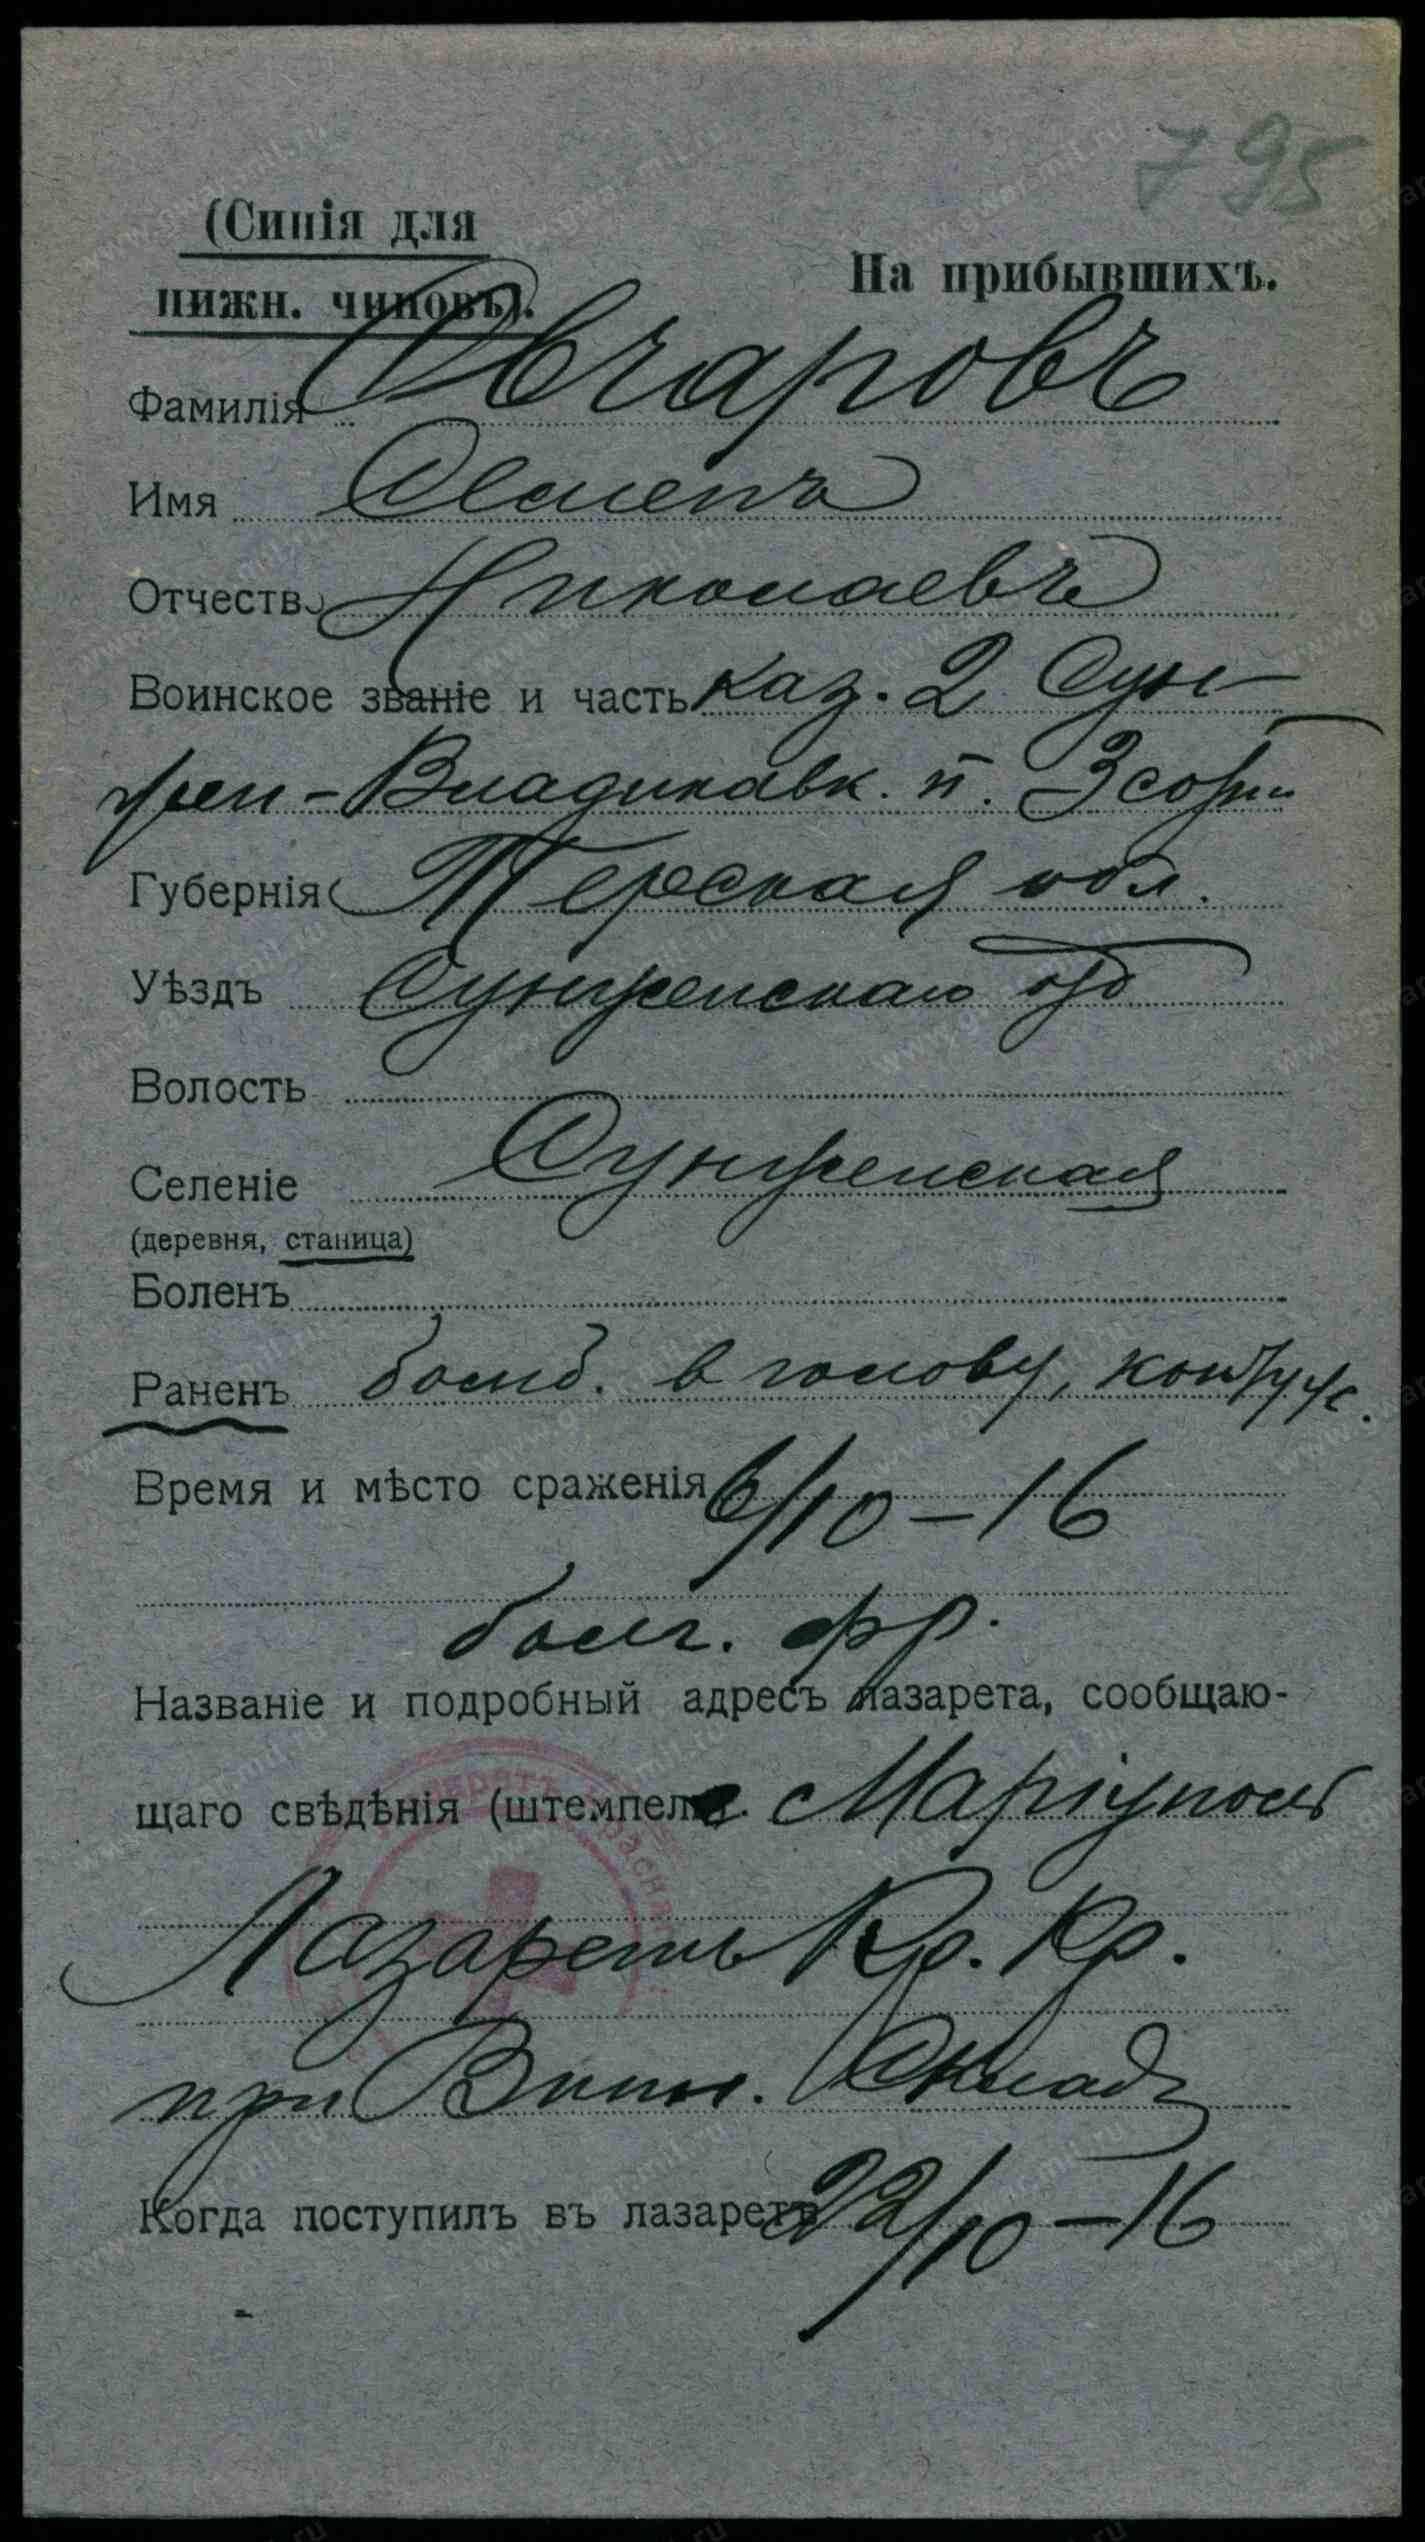 795
(Синія для
нижн. чиновъ).
На прибывшихъ.
Фамилія Овчаровъ
Имя Осипъ
Отчество Николаевъ
Воинское званіе и часть каз. 2 Сун-
жен-Владикавк. п. 3 сотн
Губернія Терская обл.
Уѣздъ Сунженскаго отд
Волость
Селеніе Сунженская
(деревня, станица)
Боленъ
Раненъ бомб. в голову, контуж.
Время и мѣсто сраженія 6/10-16
болг. фр.
Названіе и подробный адресъ лазарета, сообщаю-
щаго свѣдѣнія (штемпель). Маріуполь
Лазаретъ Кр. Кр.
при Винн. Складѣ
Когда поступилъ въ лазаретъ 22/10-16
www.gwar.mil.ru